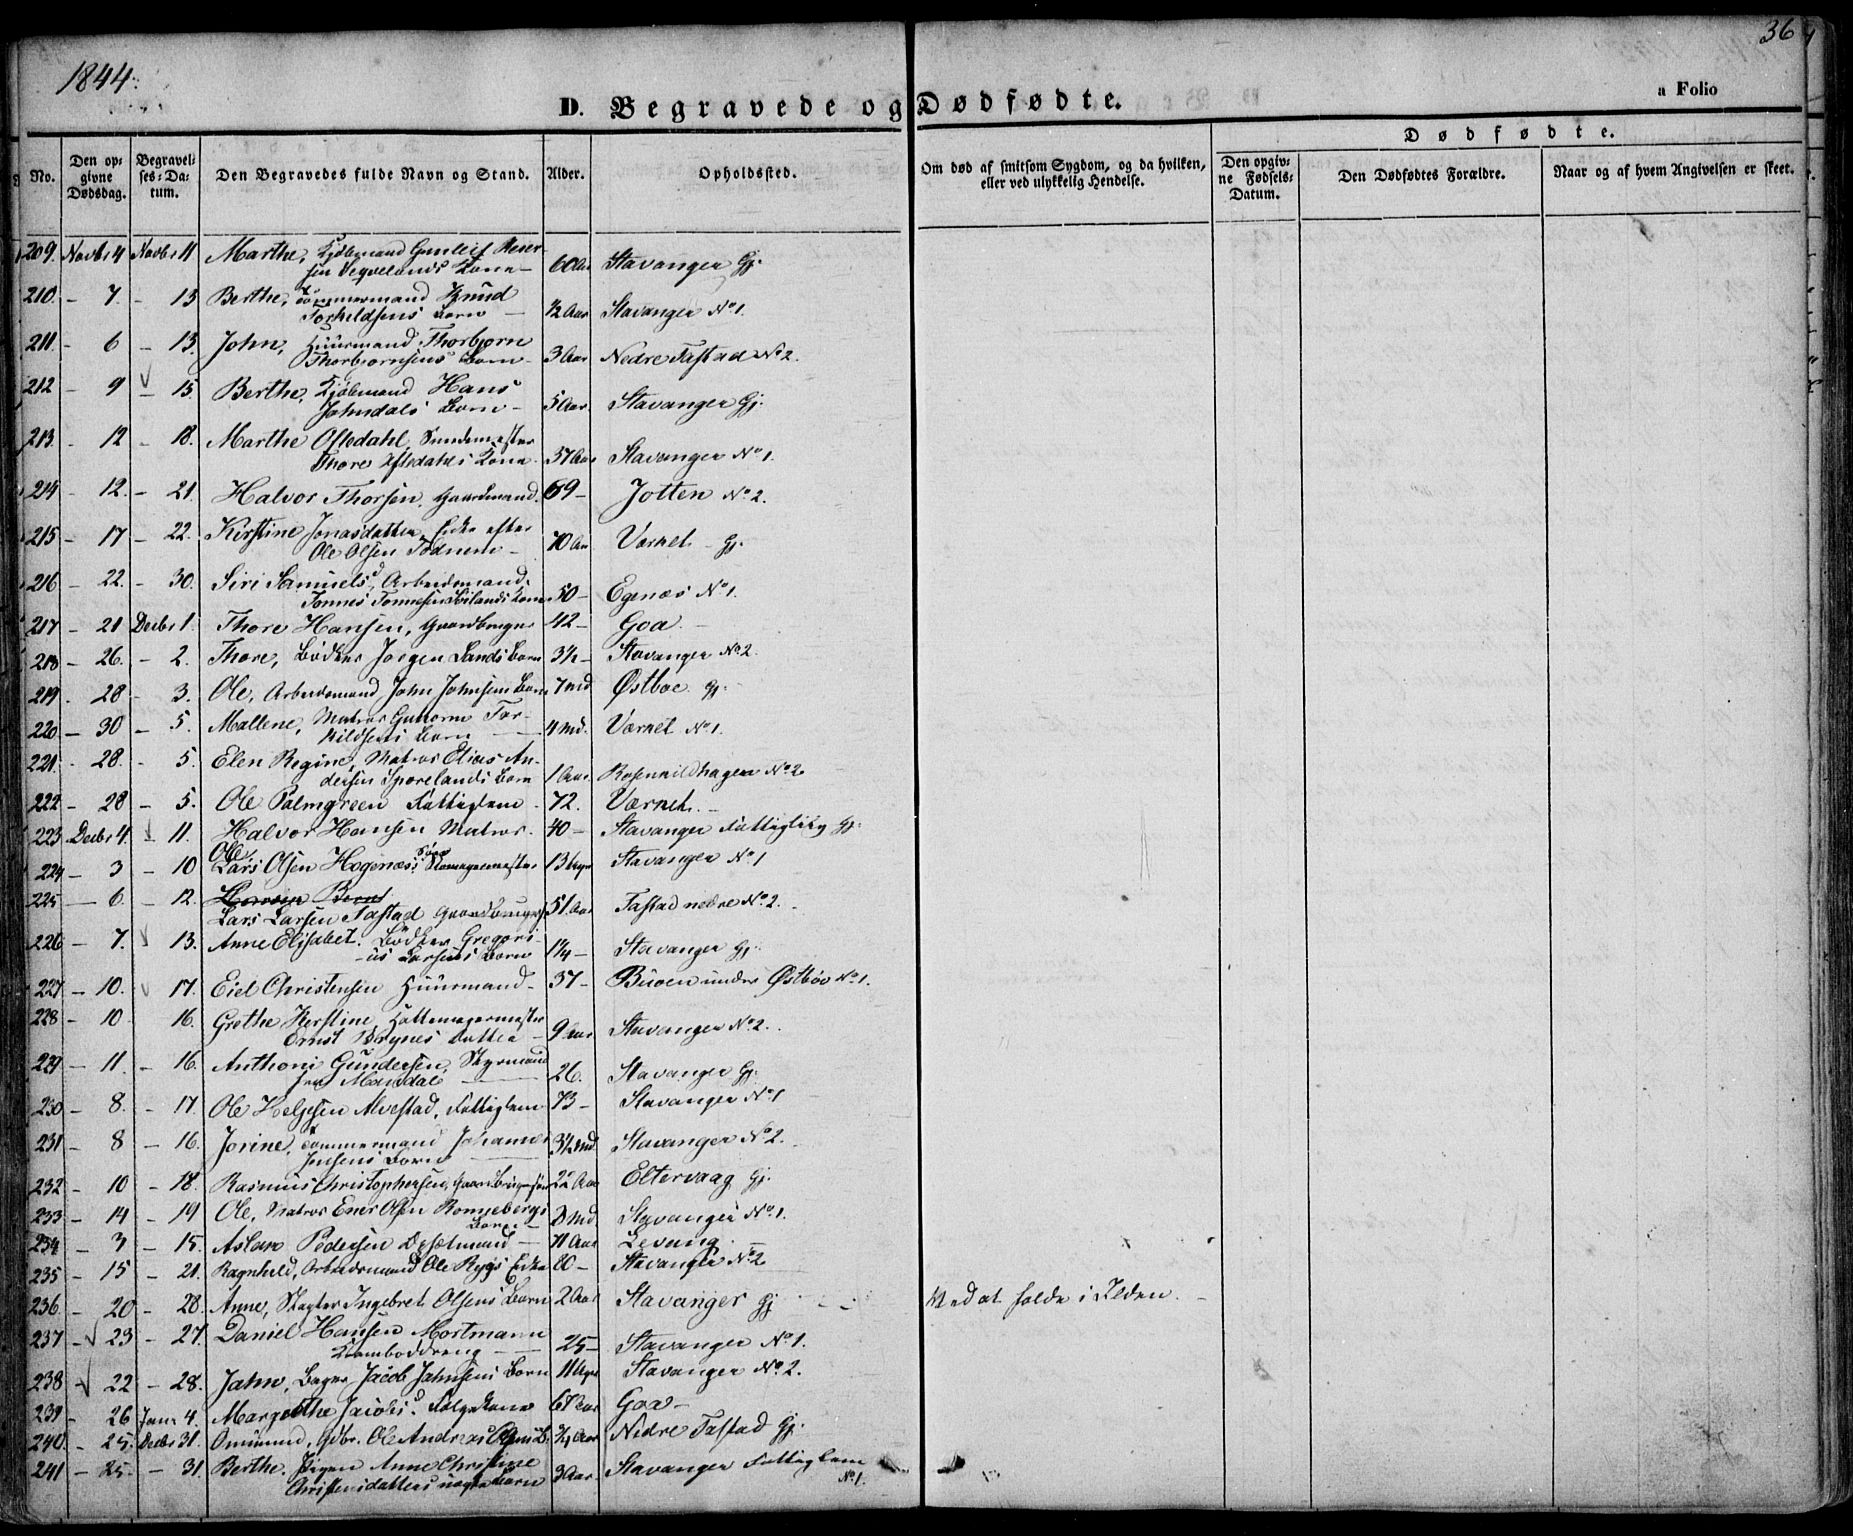 1844.
36
D. Begravede og Dødfødte.
a Folio
No.
Den opgivne Dødsdag.
Begravelses-Datum.
Den Begravedes fulde Navn og Stand.
Alder.
Opholdssted.
Om død af smitsom Sygdom, og da hvilken, eller ved ulykkelig Hendelse.
Dødfødte.
Den opgivne Fødsels-Datum.
Den Dødfødtes Forældre.
Naar og af hvem Angivelsen er skeet.
209. Novbr 4 Novbr 11 Marthe, Kjøbmand Gunleif
Kone 60 Aar Stavanger Gj.
210. - 7. - 13 Berthe, Tømmermand Knud
Torkildsens Barn - ½ Aar Stavanger No 1.
211. - 6 - 13. John, Huusmand Thorbjørn
Thorbjørnsens Barn - 3 Aar Nedre Tastad No 2.
212 - 9 - 15. Berthe, Kjøbmand Hans
Johndals Barn - 5 Aar. Stavanger Gj.
213. - 12 - 18. Marthe Oftedahl,
Thore Oftedahls Kone. 37 Aar Stavanger No 1.
214 - 12. - 21. Halvor Thorsen, Gaardmand. 69 - Jotten No 2.
215 - 17 - 22. Kirstine Jonasdatter, Enke efter
Ole Olsen Todnem - 70 Aar Værket - Gj.
216 - 22. - 30. Siri Samuelsd, Arbeidsmand
Tonnes Tonnesen Kone 50 - Egenæs No 1.
217 - 21 Decbr 1. Thore Hansen, Gaardbruger 42 - Goa -
218 - 26. - 2. Thore, Bødker Jørgen Sands Barn 3½ - Stavanger No 2.
219. - 28 - 3. Ole, Arbeidsmand John Johnsens Barn 7 Md Østboe Gj.
220 - 30 - 5. Mallene, Matros Guttorm Tor-
kildsens Barn 4 Md. Værket No 1.
221. - 28. - 5. Elen Regine, Matros Elias An-
dersen Barn 1 Aar. Rosenkildhagen No 2
222 - 28 - 5. Ole Palmgreen Fattiglem - 72. Værket. -
223 Decbr 4. - 11. Halvor Hansen Matros. 40 - Stavanger Gj.
Ole
224 - 3 - 10 Lars Olsen Høgenæs, Søn 13 Uger Stavanger No 1
225 - 6 - 12.
Lars Larsen Tastad Gaardbruger 51 Aar Tastad nedre No 2.
226 - 7. - 13. Anne Elisabet. Bødker Gregori-
us Larsens Barn 1¼ - Stavanger Gj.
227 - 10. - 17. Eiel Christensen Huusmand - 37 - Buoen under Østbøe No 1.
228 - 10 16. Grethe Kerstine, Hattemagermester
Ernst Brynes Datter - 9 Aar Stavanger No 2.
229 - 11. - 16. Anthoni Gundersen, Styrmand
fra Mandal 26. Stavanger Gj.
230 - 8. - 17. Ole Helgesen Alvestad, Fattiglem 73 - Stavanger No 1
231 - 8 - 16. Jorine, Tømmermand Johannes
Jensens Barn 3½ Md. Stavanger No 2.
232 - 10 - 18. Rasmus Christophersen, 22 Aar Eltervaag Gj.
233 - 14 - 19 Ole, Matros Olsen Rønnebergs
Barn - 8 Md. Stavanger No 1.
234 - 3 - 15. Aslak Pedersen - 71 Aar Levang -
235 - 15 - 21. Ragnhild, Arbeidsmand Ole Enke 80 - Stavanger No 2
236 - 20 - 28. Anne, Slagter Ingebret Olsens Barn 2 Aar Stavanger Gj. Ved at falde i Ilden.
237 - 23 - 27. Daniel Hansen Mortmann
Kramboddreng 25 - Stavanger No 1.
238 - 22 - 28. Jahn, Bager Jacob Jahnsens Barn 11 Uger Stavanger No 2.
239 - 26 Janr 4. Margrethe Jacobsd. 68 Aar Goa -
240. - 25. Decbr 31. Ommund, Gdbr. Ole Andreas Olsens B. ¾ Aar Nedre Tastad Gj.
241 - 25. - 31 Berthe, Pigen Anne Christine
Christensdatters uægte Barn 3 Aar Stavanger Fattiglem
No 1.